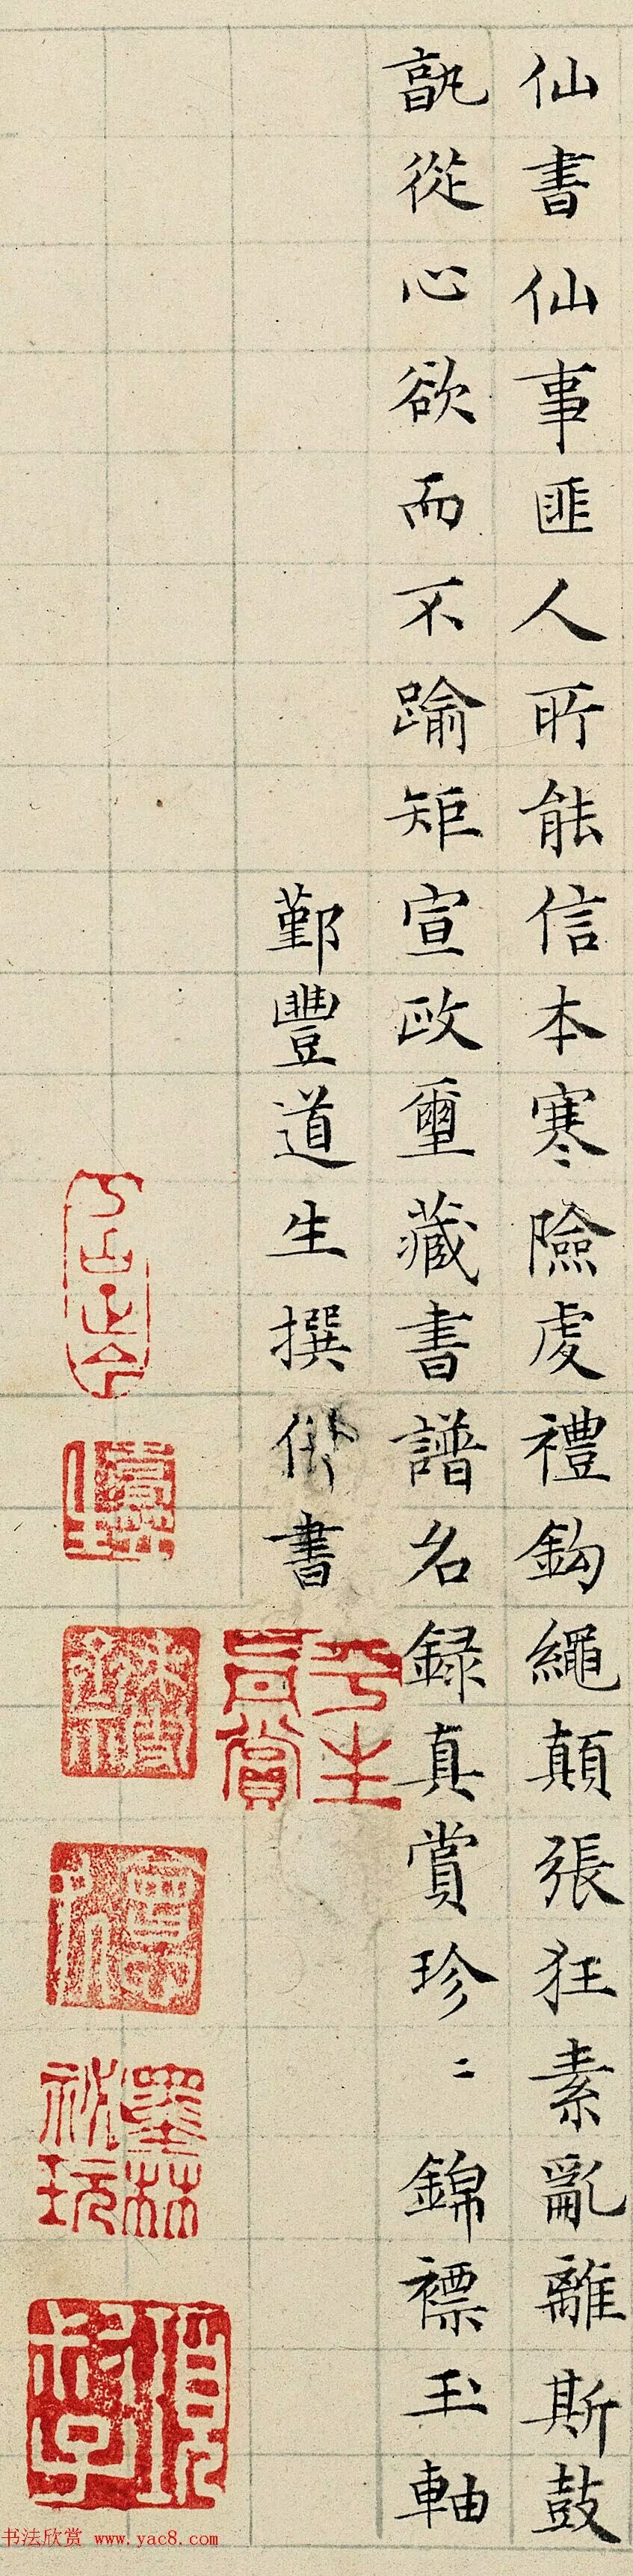 仙書仙事匪人所能信本寒險虔禮鈎繩顛張狂素亂離斯鼓
孰從心欲而不踰矩宣政璽藏書譜名録真賞珍〻錦褾玉軸
鄞豐道生撰併書
平生真賞
墨林祕玩
項子京
书法欣赏 www.yac8.com